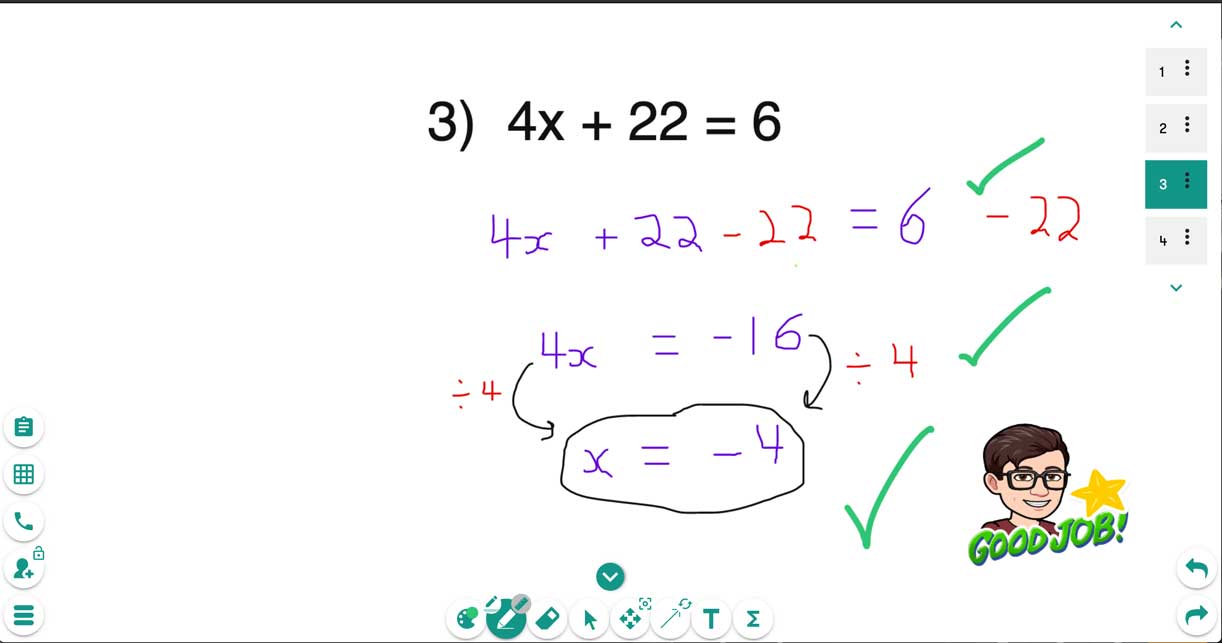 3) 4x + 22 = 6
4x + 22 - 22 = 6 - 22
4x = -16
÷ 4 ÷ 4
x = - 4
GOOD JOB!
1
2
3
4
T
Σ